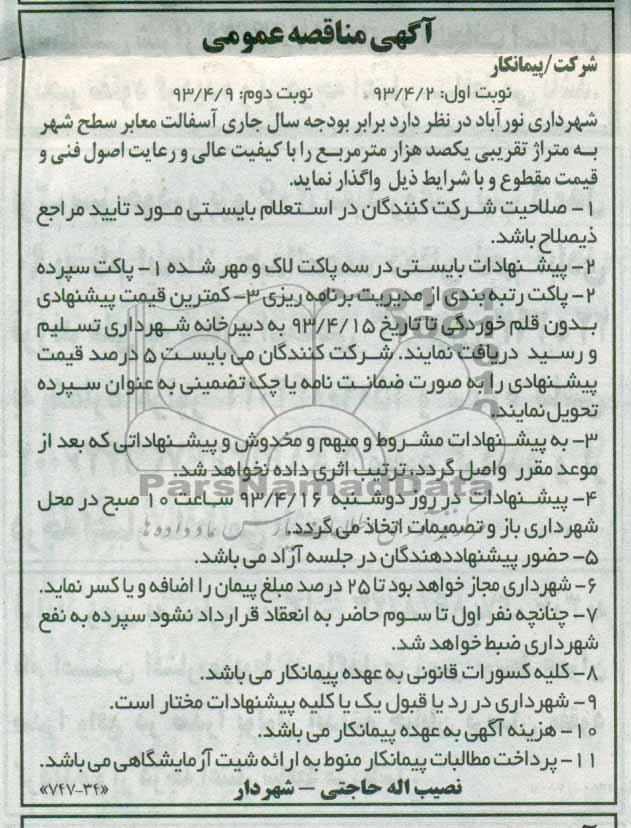 آگهی مناقصه عمومی
شرکت/پیمانکار
نوبت اول: ۹۳/۴/۲ نوبت دوم: ۹۳/۴/۹
شهرداری نورآباد در نظر دارد برابر بودجه سال جاری آسفالت معابر سطح شهر
به متراژ تقریبی یکصد هزار مترمربع را با کیفیت عالی و رعایت اصول فنی و
قیمت مقطوع و با شرایط ذیل واگذار نماید.
۱- صلاحیت شرکت کنندگان در استعلام بایستی مورد تأیید مراجع
ذیصلاح باشد.
۲- پیشنهادات بایستی در سه پاکت لاک و مهر شده ۱- پاکت سپرده
۲- پاکت رتبه بندی از مدیریت برنامه ریزی ۳- کمترین قیمت پیشنهادی
بدون قلم خوردگی تا تاریخ ۹۳/۴/۱۵ به دبیرخانه شهرداری تسلیم
و رسید دریافت نمایند. شرکت کنندگان می بایست ۵ درصد قیمت
پیشنهادی را به صورت ضمانت نامه یا چک تضمینی به عنوان سپرده
تحویل نمایند.
۳- به پیشنهادات مشروط و مبهم و مخدوش و پیشنهاداتی که بعد از
موعد مقرر واصل گردد، ترتیب اثری داده نخواهد شد.
ParsNamadData
۴- پیشنهادات در روز دوشنبه ۹۳/۴/۱۶ ساعت ۱۰ صبح در محل
شهرداری باز و تصمیمات اتخاذ می گردد.
۵- حضور پیشنهاددهندگان در جلسه آزاد می باشد.
۶- شهرداری مجاز خواهد بود تا ۲۵ درصد مبلغ پیمان را اضافه و یا کسر نماید.
۷- چنانچه نفر اول تا سوم حاضر به انعقاد قرارداد نشود سپرده به نفع
شهرداری ضبط خواهد شد.
۸- کلیه کسورات قانونی به عهده پیمانکار می باشد.
۹- شهرداری در رد یا قبول یک یا کلیه پیشنهادات مختار است.
۱۰- هزینه آگهی به عهده پیمانکار می باشد.
۱۱- پرداخت مطالبات پیمانکار منوط به ارائه شیت آزمایشگاهی می باشد.
نصیب اله حاجتی – شهردار «۷۴۷-۳۴»